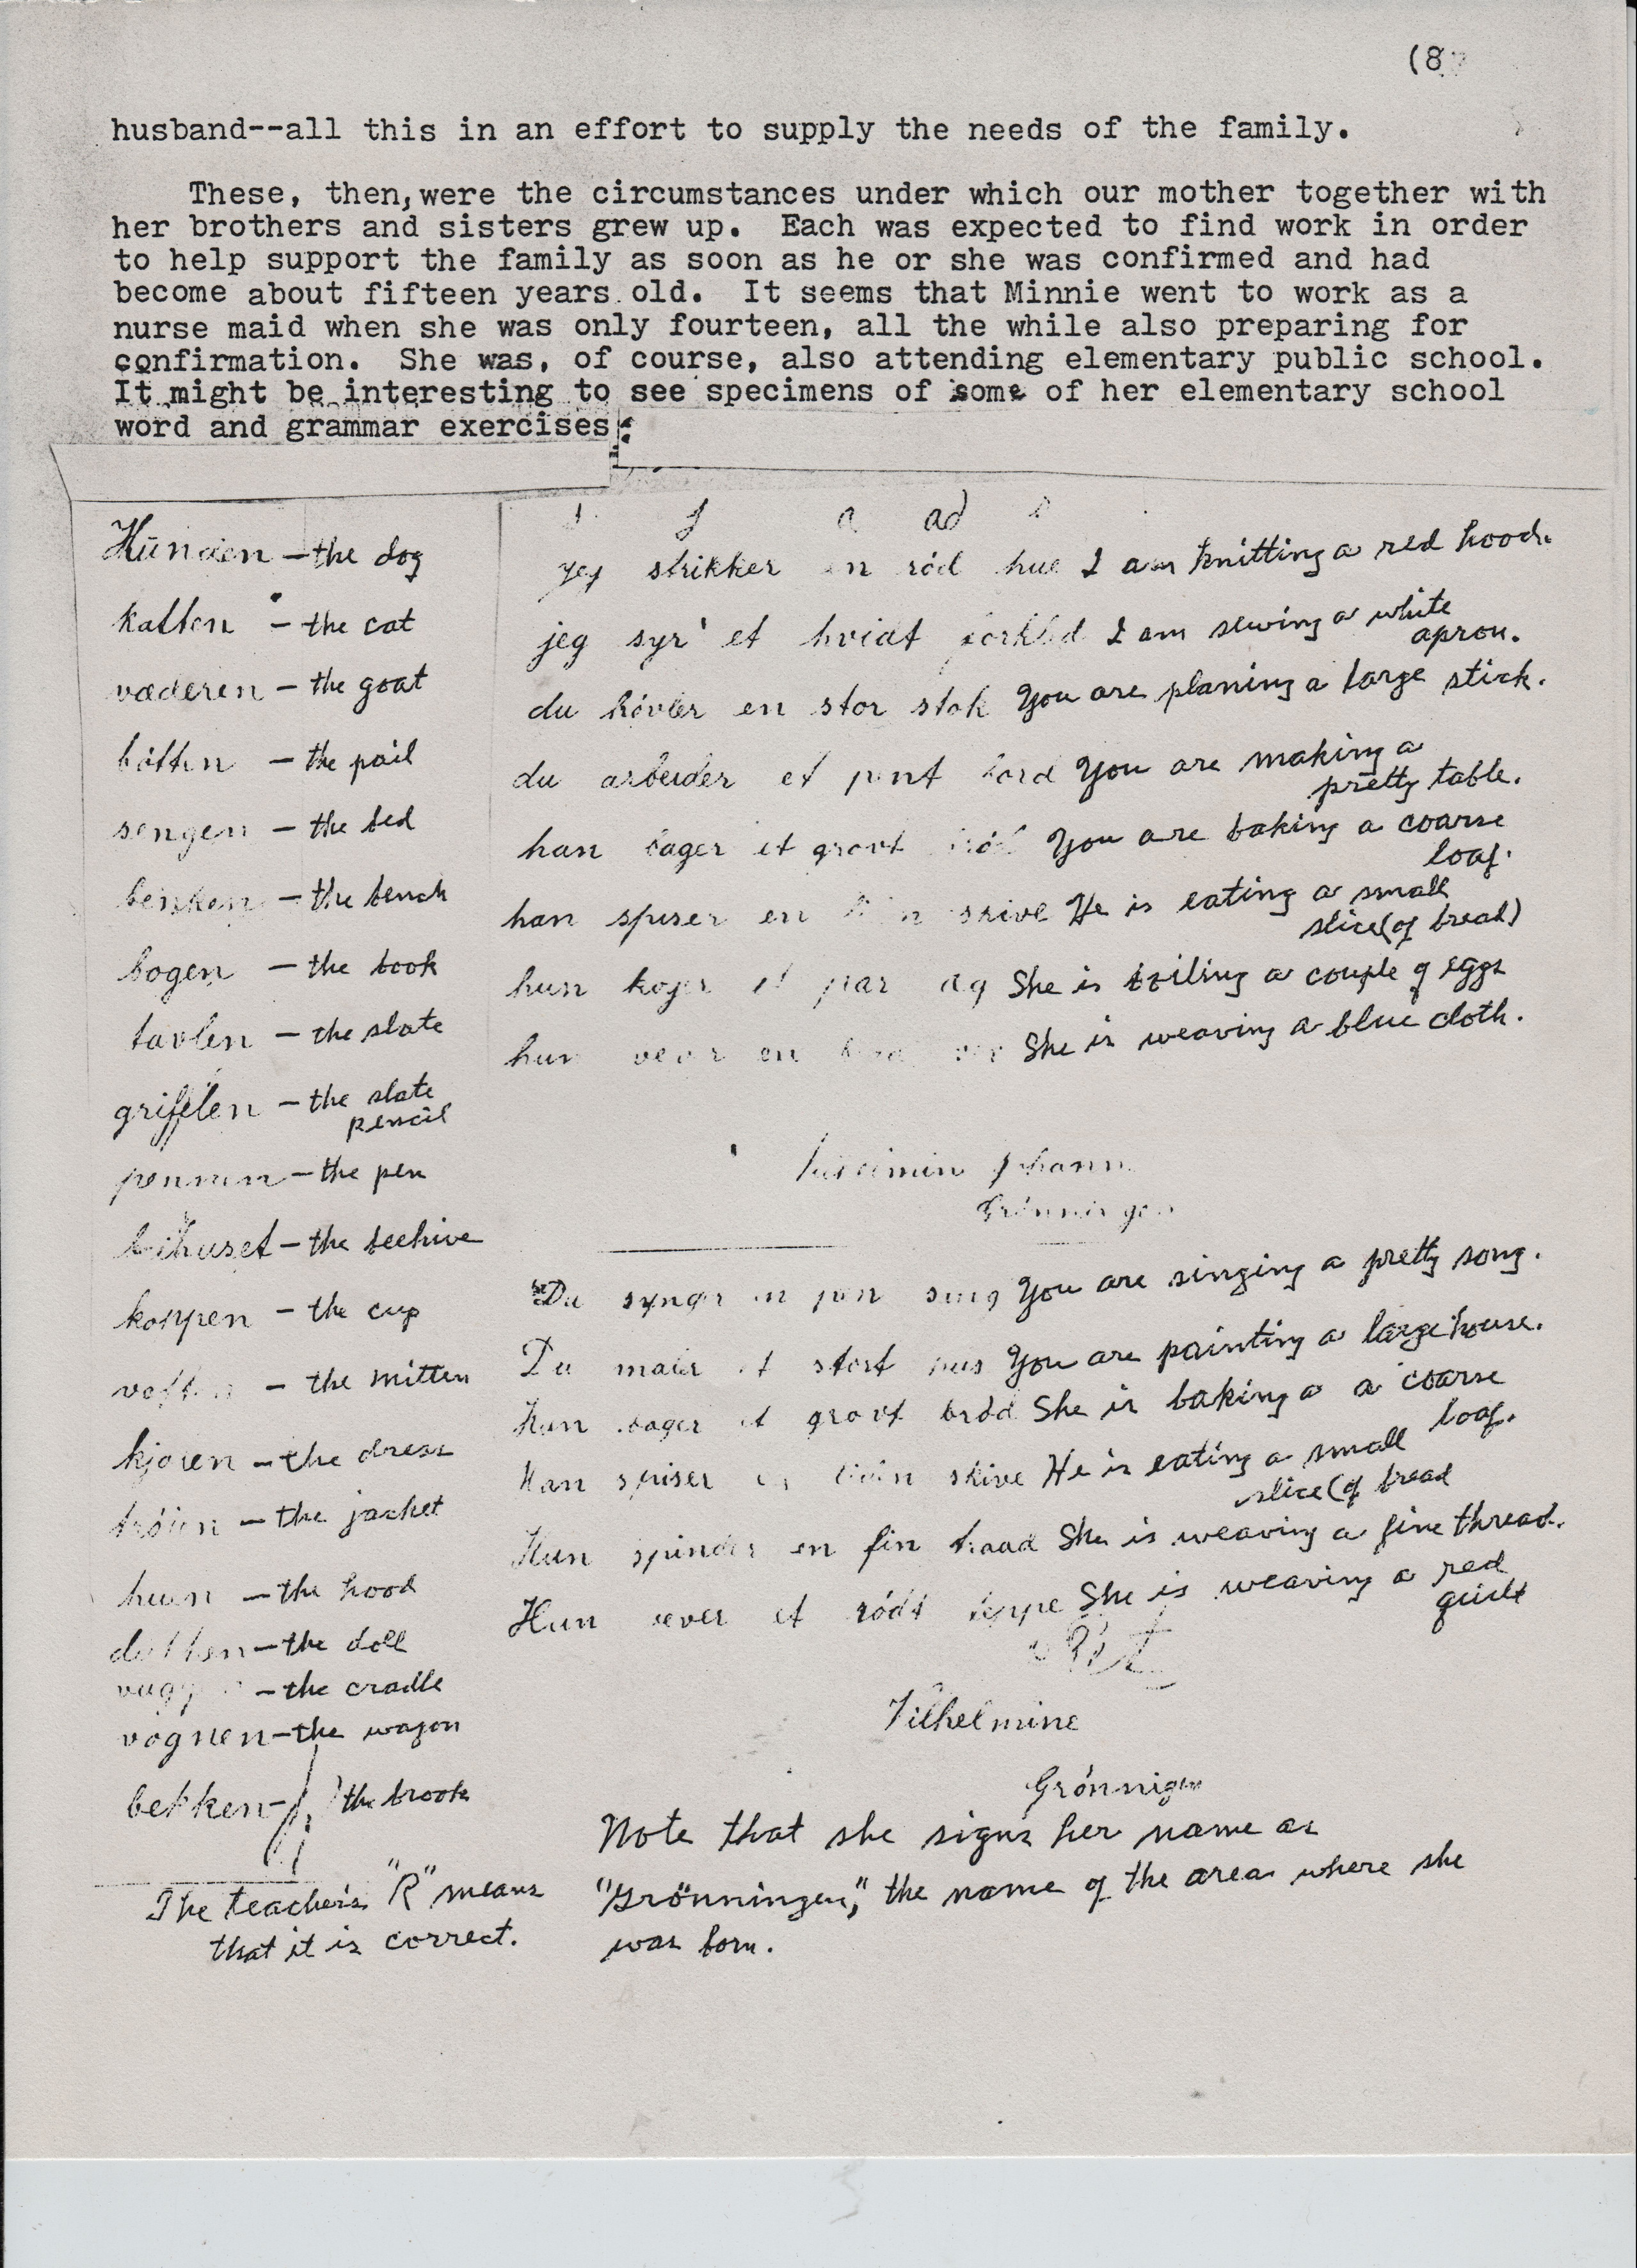 (8
husband--all this in an effort to supply the needs of the family.
These, then, were the circumstances under which our mother together with
her brothers and sisters grew up. Each was expected to find work in order
to help support the family as soon as he or she was confirmed and had
become about fifteen years old. It seems that Minnie went to work as a
nurse maid when she was only fourteen, all the while also preparing for
confirmation. She was, of course, also attending elementary public school.
It might be interesting to see specimens of some of her elementary school
word and grammar exercises:
Hunden - the dog
katten - the cat
væderen - the goat
bötten - the pail
sengen - the bed
benken - the bench
bogen - the book
tavlen - the slate
griffelen - the slate
pencil
pennen - the pen
bihuset - the beehive
koppen - the cup
- the mitten
kjolen - the dress
tröien - the jacket
huen - the hood
dukken - the doll
- the cradle
vognen - the wagon
bekken - the brook
The teacher's "R" means
that it is correct.
jeg strikker en röd hue I am knitting a red hood.
jeg syr et hvidt forklæd I am sewing a white
apron.
du hövler en stor stok You are planing a large stick.
du arbeider et pent bord You are making a
pretty table.
han bager et grovt bröd You are baking a coarse
loaf.
han spiser en skive He is eating a small
slice (of bread)
hun koger et par æg She is boiling a couple of eggs
hun en She is weaving a blue cloth.
Grönningen
Du synger en pen sang You are singing a pretty song.
Du maler et stort hus You are painting a large house.
Hun bager et grovt bröd She is baking a a coarse
loaf.
Han spiser en skive He is eating a small
slice (of bread
Hun spinder en fin traad She is weaving a fine thread.
Hun vever et rödt teppe She is weaving a red
quilt
Vilhelmine
Grönnigen
Note that she signs her name as
"Grönningen," the name of the area where she
was born.